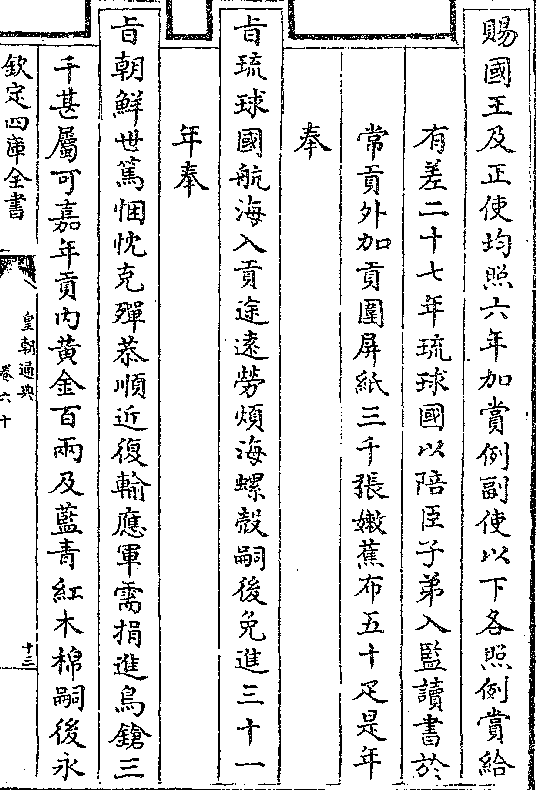 賜國王及正使均照六年加賞例副使以下各照例賞給
有差二十七年琉球國以陪臣子弟入監讀書於
常貢外加貢圍屏紙三千張嫩蕉布五十疋是年
奉
㫖琉球國航海入貢途遠勞煩海螺殻嗣後免進三十一
年奉
㫖朝鮮世篤悃忱克殫恭順近復輸應軍需捐進鳥鎗三
千甚屬可嘉年貢内黄金百兩及藍青紅木棉嗣後永
欽定四庫全書
皇朝通典
卷六十
十三